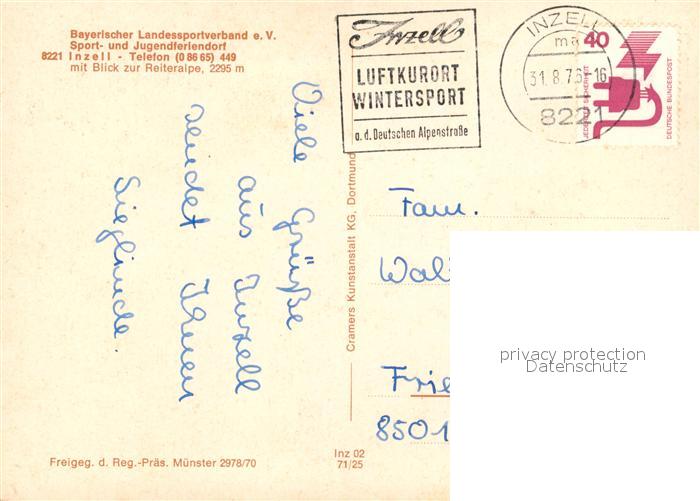 Bayerischer Landessportverband e. V.
Sport- und Jugendferiendorf
8221 Inzell - Telefon (0 86 65) 449
mit Blick zur Reiteralpe, 2295 m
Inzell
LUFTKURORT
WINTERSPORT
a. d. Deutschen Alpenstraße
INZELL
ma
31.8.76-16
8221
40
JEDERZEIT SICHERHEIT
DEUTSCHE BUNDESPOST
Viele Grüße
aus Inzell
sendet Ihnen
Sieglinde.
Cramers Kunstanstalt KG, Dortmund
Fam.
Wal
Frie
8501
privacy protection
Datenschutz
Freigeg. d. Reg.-Präs. Münster 2978/70
Inz 02
71/25